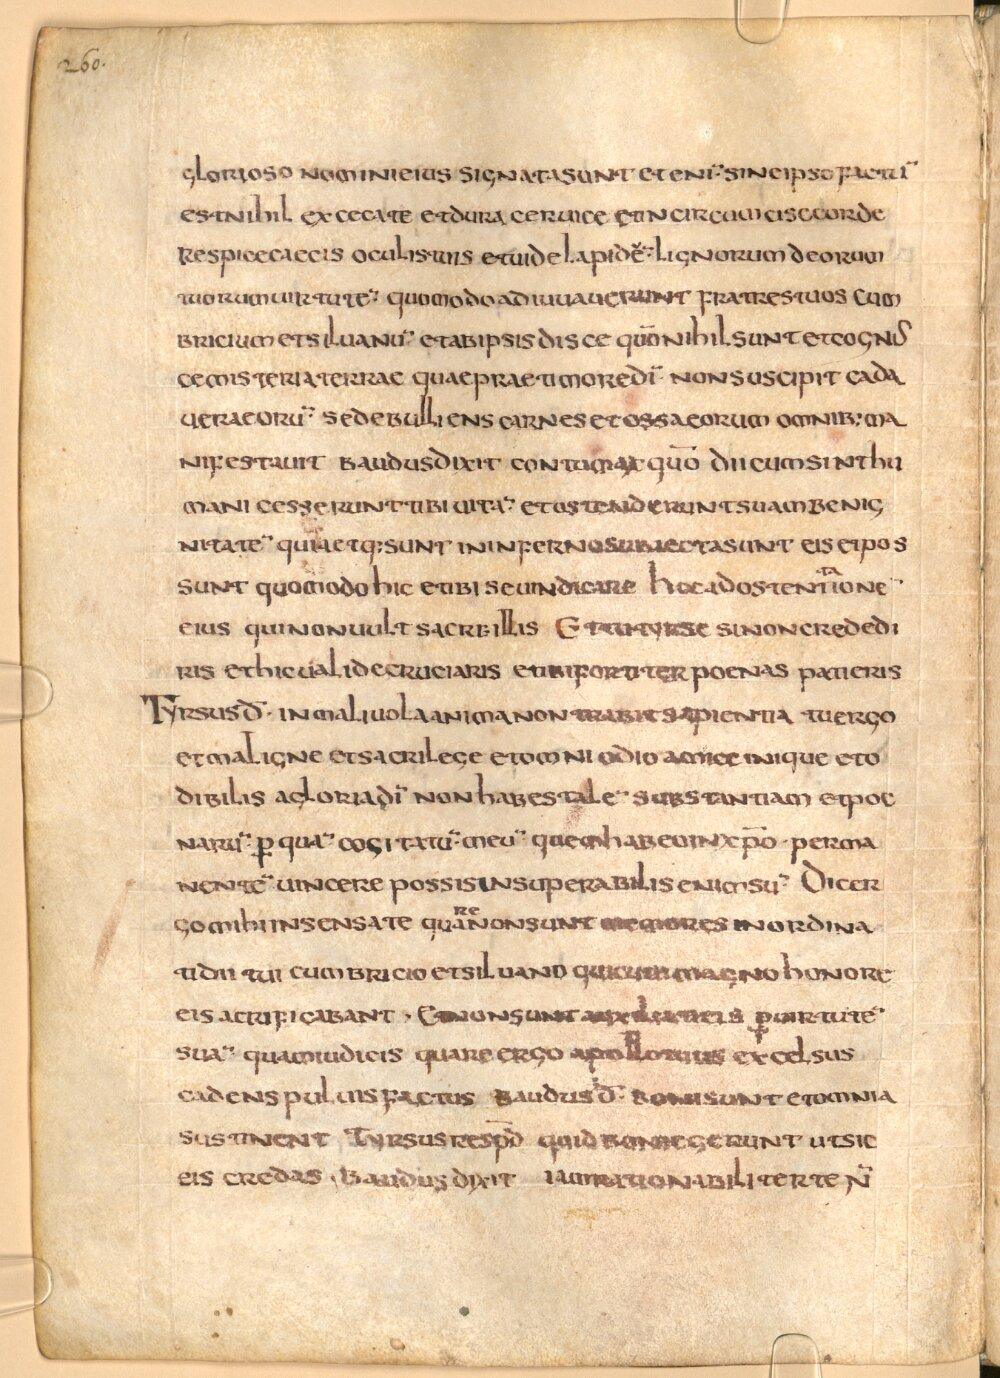 260.
glorioso nomini eius signata sunt et eni͂ sine ipso factu͂
est nihil excecate et dura cervice et incircumcise corde
respice caecis oculis tuis et uide lapide͂ · lignorum deorum
tuorum uirtute͂ quomodo adiuuauerunt fratres tuos cum
bricium et siluanu͂ et ab ipsis disce quo͞ nihil sunt et cognos
ce misteria terrae quae prae timore di͞ non suscipit cada
uera eoru͂ sed ebulliens carnes et ossa eorum omnib; ma
nifestauit baudus dixit contumax quo͞ dii cum sint hu
mani cesserunt tibi uita͂ et ostenderunt suam benig
nitate͂ quia et q; sunt in inferno subiecta sunt eis et pos
sunt quomodo hic et ibi se uindicare hoc ad ostentatione͂
eius qui non uult sacrillis Et tu tyrse si non credede
ris et hic ualide cruciaris et ibi fortiter poenas patieris
Tyrsus d͞ · in maliuola anima non intrabit sapientia tu ergo
et maligne et sacrilege et omni odio amice inique et o
dibilis a gloria di͞ non habes tale͂ substantiam et poe
naru͂ p qua͂ cogitatu͂ meu͂ quem habeo in xp͞o · perma
nente͂ uincere possis insuperabilis enim su͂ Dic er
go mihi insensate quare non sunt memores inordina
ti dii tui cum bricio et siluano qui cum magno honore
eis aedificabant · Et non sunt auxiliati eis p uirtute͂
sua͂ quam iudicis quare ergo apollo tuus excelsus
cadens puluis factus baudus d͞ · boni sunt et omnia
sustinent Tyrsus resp͞d quid boni egerunt ut sic
eis credas · baudus dixit iam rationabiliter te N͂